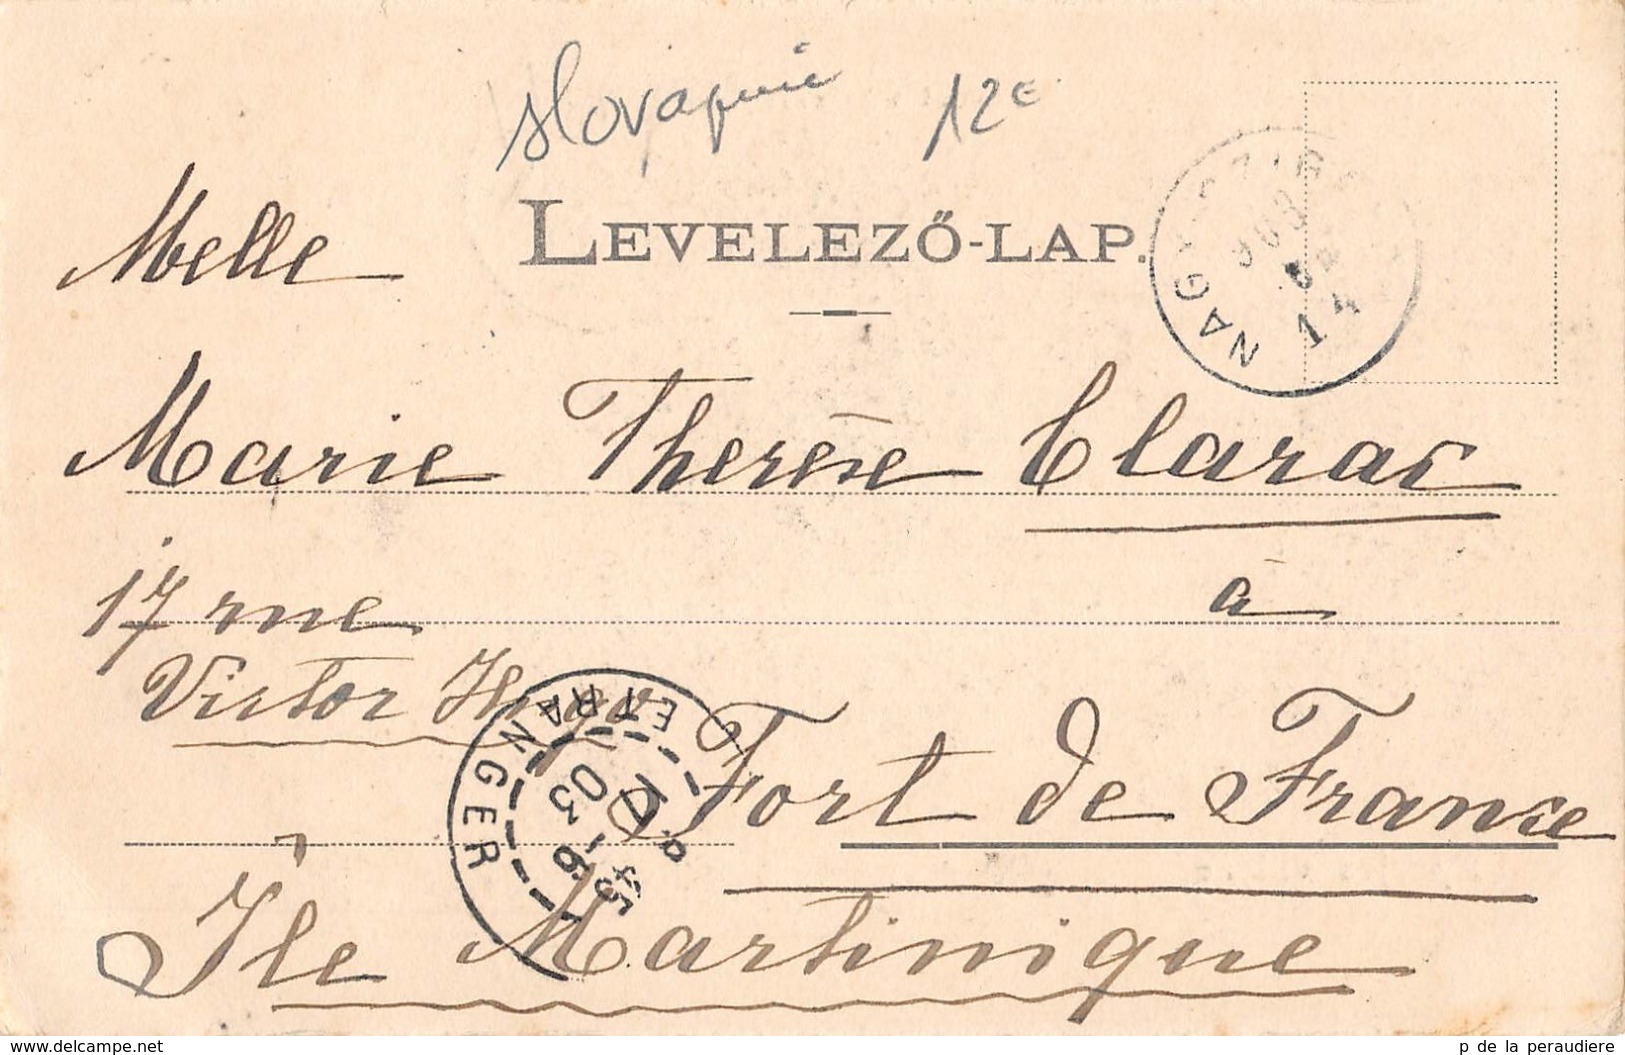 slovaquie 12€
LEVELEZŐ-LAP.
NAGY
903
14
Melle
Marie Therèse Clarac
à
17 rue
Victor Hugo
Fort de France
Île Martinique
ETRANGER
45
6 - 03
www.delcampe.net
p de la peraudiere